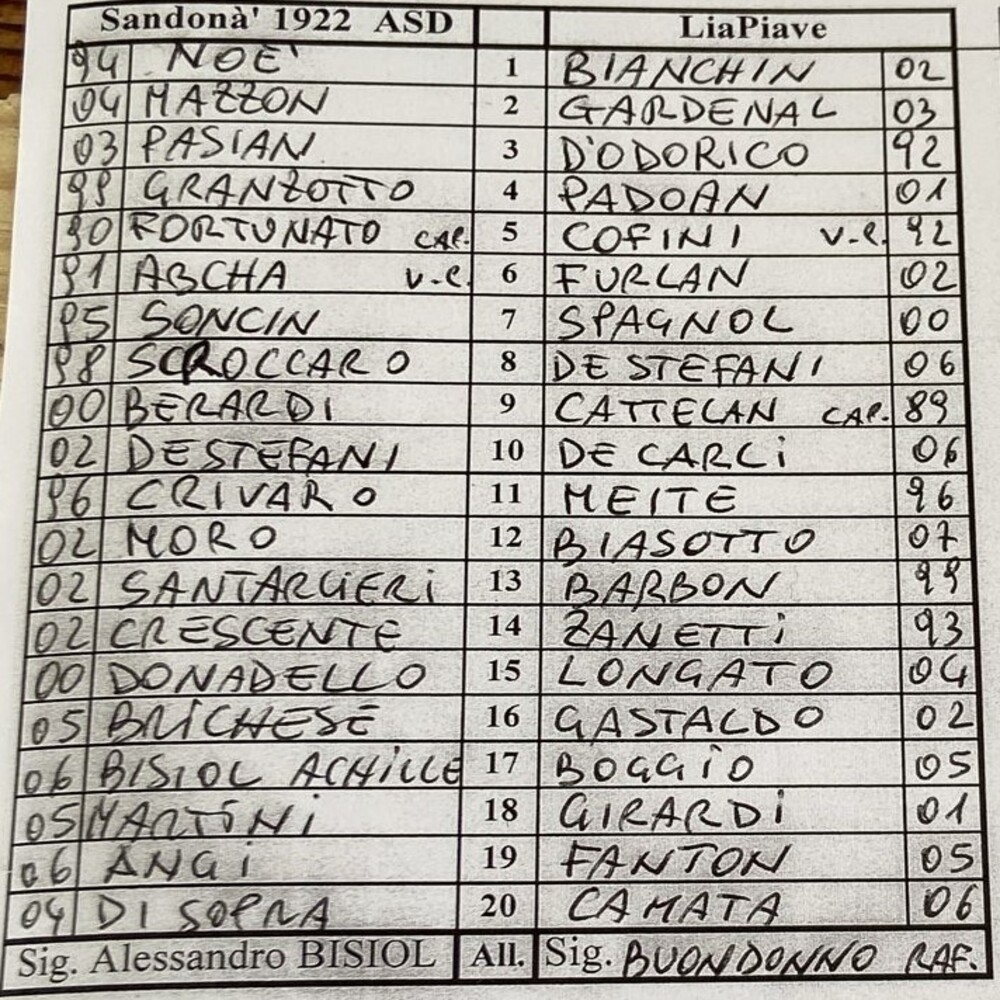 Sandonà' 1922 ASD LiaPiave
94 NOE' 1 BIANCHIN 02
04 MAZZON 2 GARDENAL 03
03 PASIAN 3 D'ODORICO 92
99 GRANZOTTO 4 PADOAN 01
90 FORTUNATO CAP. 5 COFINI V.C. 92
91 ABCHA V.C. 6 FURLAN 02
95 SONCIN 7 SPAGNOL 00
98 SCROCCARO 8 DE STEFANI 06
00 BERARDI 9 CATTELAN CAP. 89
02 DE STEFANI 10 DE CARLi 06
96 CRIVARO 11 MEITE 96
02 MORO 12 BIASOTTO 07
02 SANTARGIERi 13 BARBON 99
02 CRESCENTE 14 ZANETTi 93
00 DONADELLO 15 LONGATO 04
05 BRiCHESE 16 GASTALDO 02
06 BISIOL ACHiLLE 17 BOGGiO 05
05 MARTiNi 18 GIRARDi 01
06 ANGi 19 FANTON 05
04 DI SOPRA 20 CAMATA 06
Sig. Alessandro BISIOL All. Sig. BUONDONNO RAF.